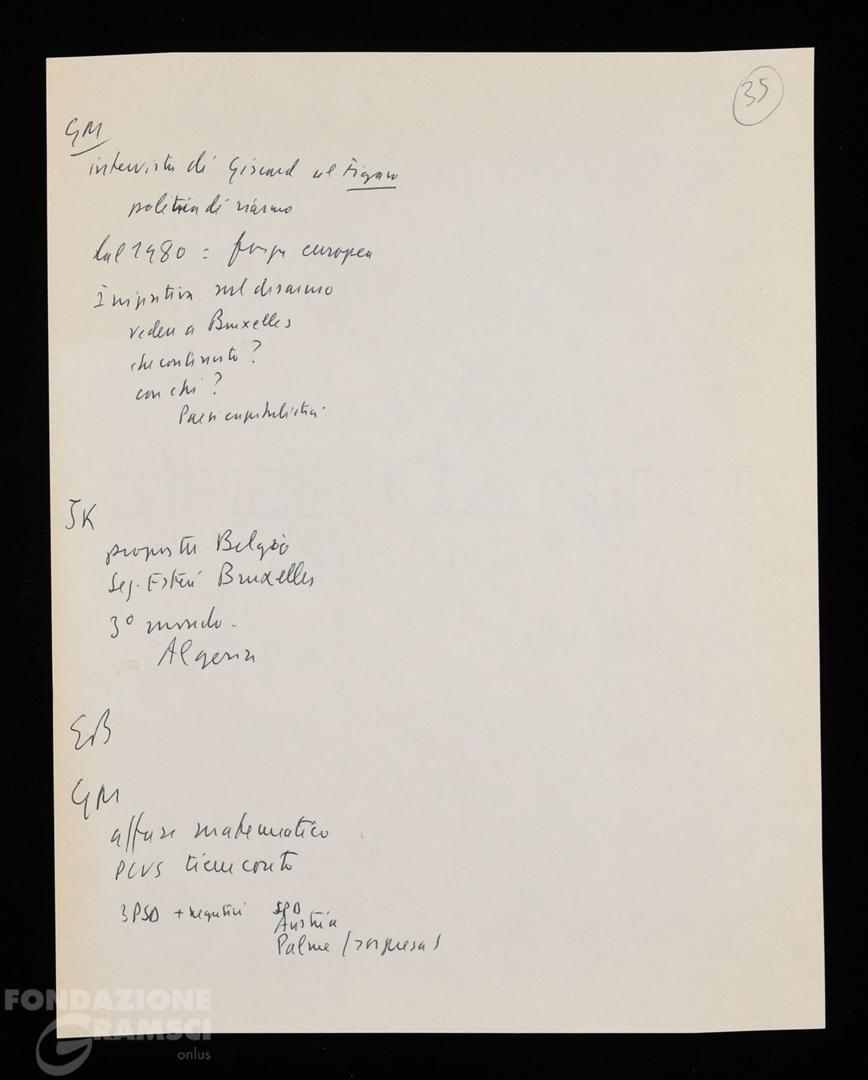 35
GM
intervista di Giscard al Figaro
politica di riarmo
dal 1980 = forza europea
Iniziativa sul disarmo
vedere a Bruxelles
che contenuto?
con chi?
Paesi capitalistici
JK
proposta Belgio
Seg. Esteri Bruxelles
3° mondo -
Algeria
EB
GM
affare matematico
PCUS tiene conto
3 PSD + negativi SPD
Austria
Palme (sorpresa)
FONDAZIONE
GRAMSCI
onlus